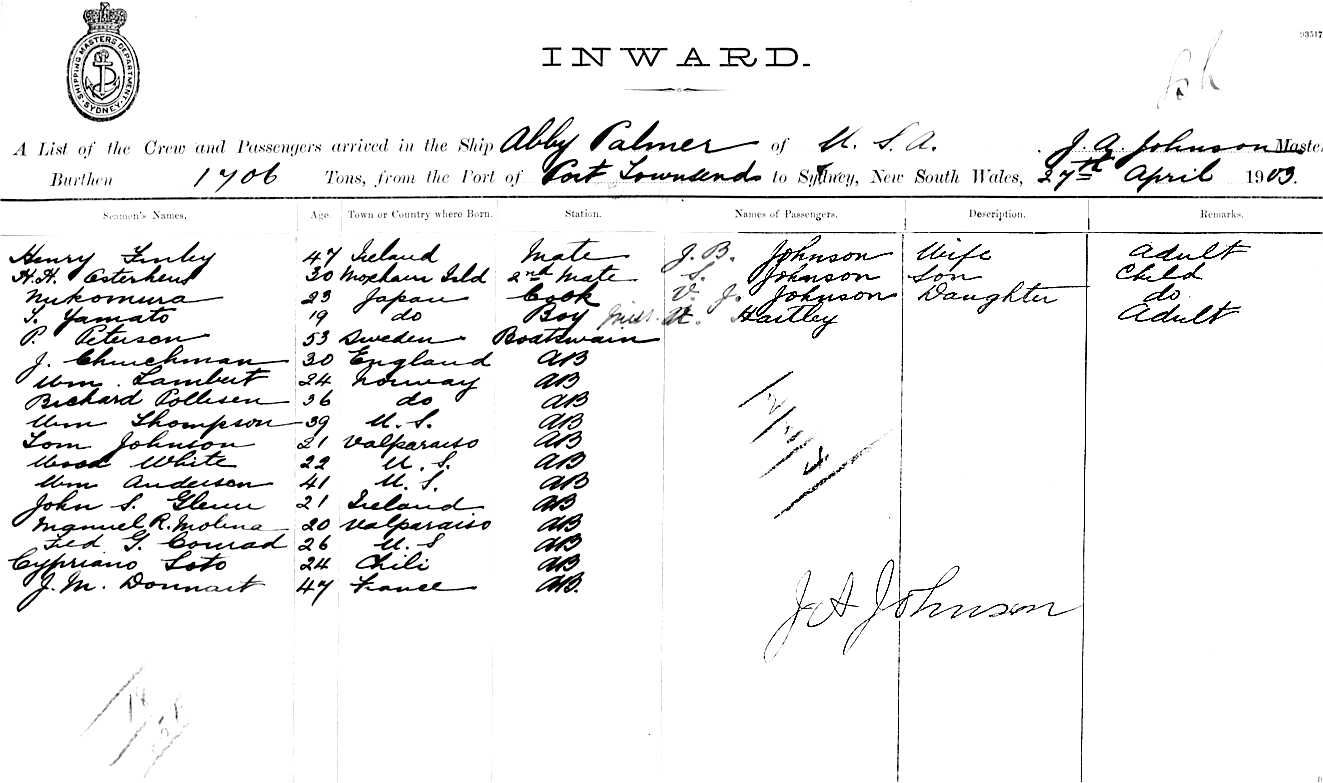 SHIPPING MASTERS DEPARTMENT SYDNEY
93517
INWARD.
A List of the Crew and Passengers arrived in the Ship Abby Palmer of U. S. A. J. A. Johnson Master
Burthen 1706 Tons, from the Port of Port Townsend to Sydney, New South Wales, 27th April 1903.
Seamen's Names. Age. Town or Country where Born. Station. Names of Passengers. Description. Remarks.
Henry Finley 47 Ireland Mate J. B. Johnson Wife Adult
H. H. 30 2nd Mate S. Johnson Son Child
Nukomura 23 Japan Cook V. J. Johnson Daughter do
T. Yamato 19 do Boy Miss Hartley Adult
P. Peterson 53 Sweden Boatswain
J. Churchman 30 England AB
Wm. Lambert 24 Norway AB
Richard Pollesen 36 do AB
Wm Thompson 39 U. S. AB
Tom Johnson 21 Valparaiso AB
Wood White 22 U. S. AB
Wm Anderson 41 U. S. AB
John S. Glenn 21 Ireland AB
Manuel R. Molina 20 Valparaiso AB
Fred G. Conrad 26 U. S AB
Cypriano Soto 24 Chili AB
J. M. Donnart 47 France AB.
J A Johnson